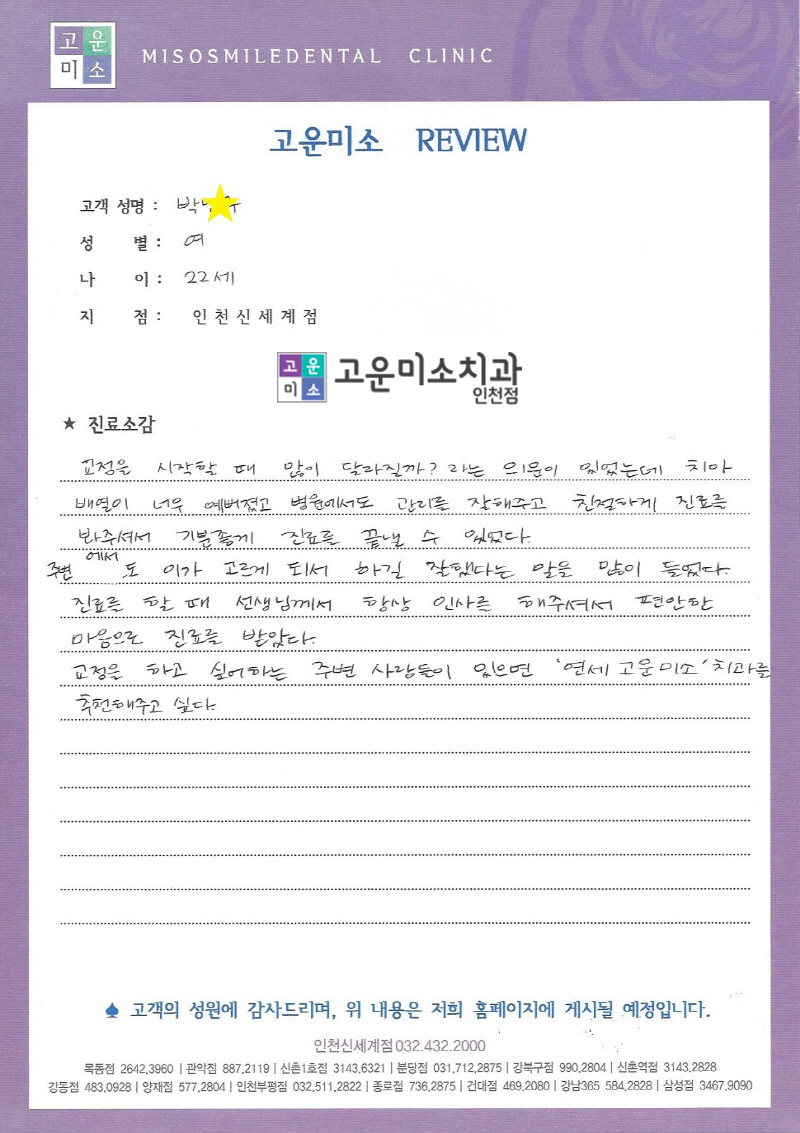 고운
미소
MISOSMILEDENTAL CLINIC
고운미소 REVIEW
고객 성명 : 박
성 별 : 여
나 이 : 22세
지 점 : 인천신세계점
고운
미소
고운미소치과
인천점
★ 진료소감
교정을 시작할 때 많이 달라질까? 라는 의문이 있었는데 치아
배열이 너무 예뻐졌고 병원에서도 관리를 잘해주고 친절하게 진료를
봐주셔서 기분좋게 진료를 끝낼 수 있었다.
주변에서도 이가 고르게 되서 하길 잘했다는 말을 많이 들었다.
진료를 할 때 선생님께서 항상 인사를 해주셔서 편안한
마음으로 진료를 받았다.
교정을 하고 싶어하는 주변 사람들이 있으면 '연세 고운미소' 치과를
추천해주고 싶다.
♠ 고객의 성원에 감사드리며, 위 내용은 저희 홈페이지에 게시될 예정입니다.
인천신세계점 032.432.2000
목동점 2642,3960 | 관악점 887,2119 | 신촌1호점 3143,6321 | 분당점 031,712,2875 | 강북구점 990,2804 | 신촌역점 3143,2828
강동점 483,0928 | 양재점 577,2804 | 인천부평점 032,511,2822 | 종로점 736,2875 | 건대점 469,2080 | 강남365 584,2828 | 삼성점 3467,9090